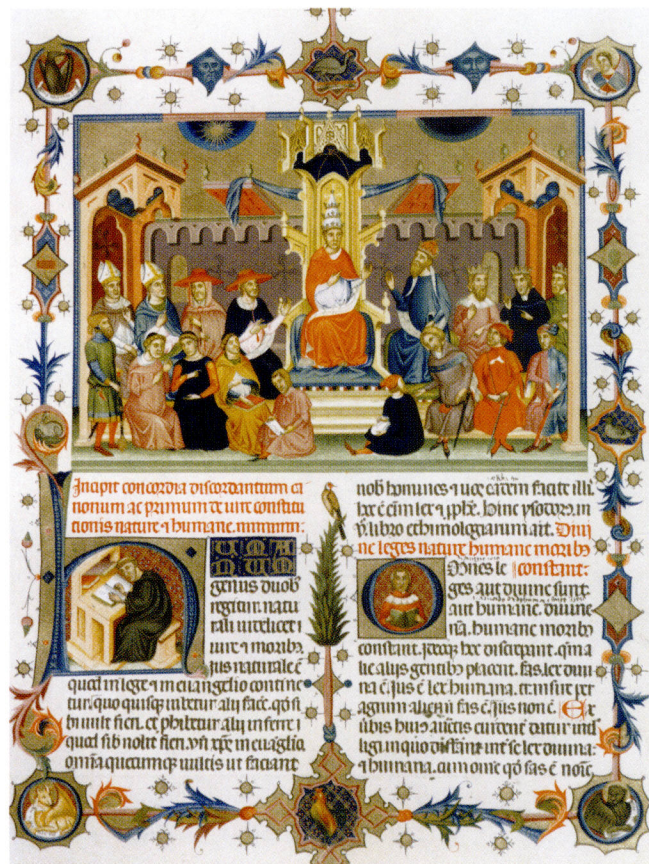 Incipit concordia discordantium ca
nonum ac primum de iure constitu
tionis nature ⁊ humane.
HUMA
NUM
genus duob
regitur. natu
rali videlicet i
iure ⁊ morib.
jus naturale ē
quod in lege ⁊ in euangelio contine
tur. quo quisq; iubetur alij face. qd si
bi uult fieri. et phibetur alij inferre
quod sibi nolit fieri. vn xpc in euāglio.
omia quecumq; uultis ut faciant
nob homines ⁊ uos eadem facite illi
hec ē enim lex ⁊ pphe. hinc ysodorus in
v. libro ethimologiarum ait. Diui
ne leges nature humane morib
constant:
Omnes le
ges aut diuine sunt
aut humane. diuine
na. humane morib
constant. ideoq; hec discrepant. qm a
lie alijs gentib placent. fas lex diui
na ē. jus ē lex humana. transire per
agrum alienū fas ē. jus non ē. Ex
huius auctis datur intel
ligi in quo differant int se lex diuina.
⁊ humana. cum ome qd fas ē noie